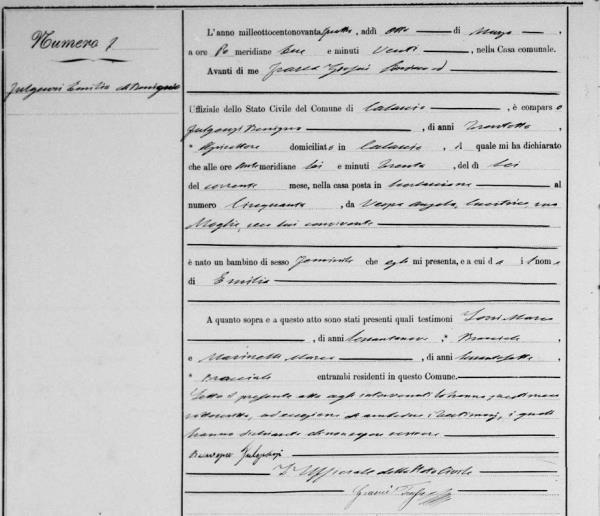 Numero
Fulgenzi Emilia di Benigno
L'anno milleottocentonovanta, addì otto di Marzo,
a ore Po meridiane due e minuti venti, nella Casa comunale.
Avanti di me
Uffiziale dello Stato Civile del Comune di Calascio, è comparso
Fulgenzi Benigno, di anni trentotto,
domiciliato in Calascio, il quale mi ha dichiarato
che alle ore antimeridiane sei e minuti trenta, del dì sei
del corrente mese, nella casa posta in al
numero Cinquanta, da Vespa Angela, sua
Moglie, seco lui convivente
è nato un bambino di sesso femminile che egli mi presenta, e a cui dà il nome
di Emilia
A quanto sopra e a questo atto sono stati presenti quali testimoni Marco
, di anni, Bracciale
e Marinelli Marco, di anni,
Bracciale entrambi residenti in questo Comune.
Letto il presente atto agli intervenuti lo hanno meco
sottoscritto, ad eccezione di ambedue i testimoni, i quali
hanno dichiarato di non sapere scrivere
Fulgenzi
L'Uffiziale dello Stato Civile